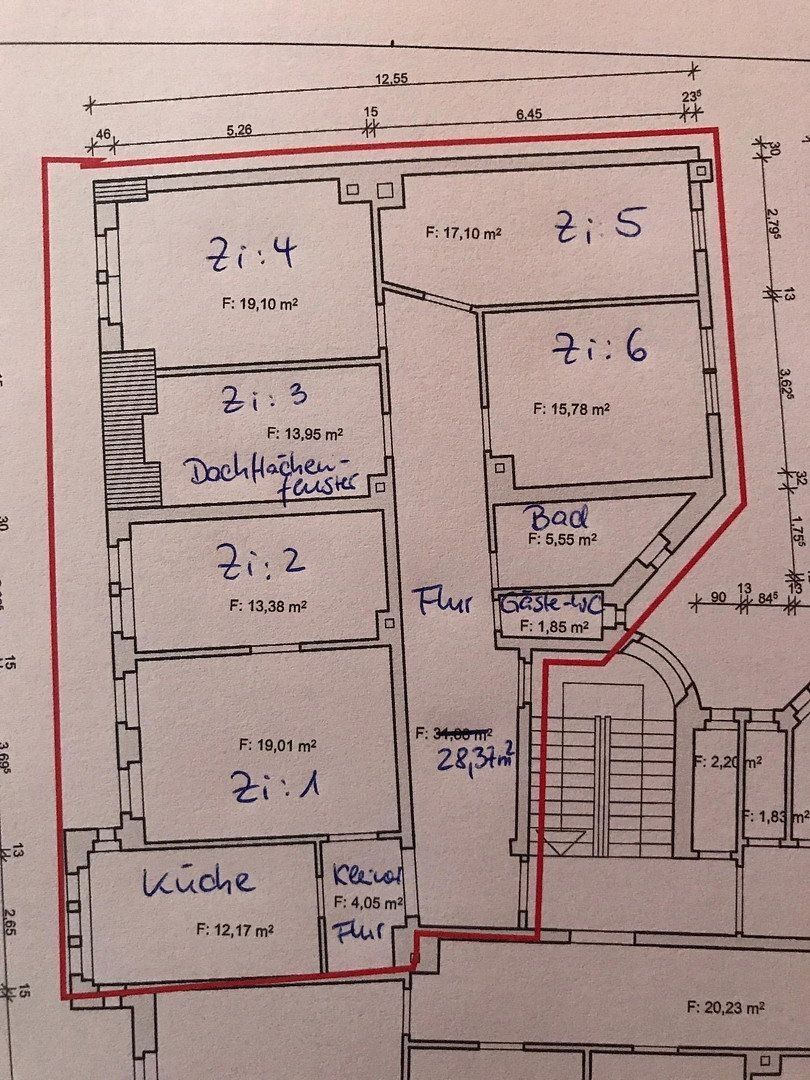 12,55
46
5,26
15
6,45
23⁵
30
Zi: 4
F: 19,10 m²
F: 17,10 m²
Zi: 5
2,79⁵
13
Zi: 6
F: 15,78 m²
3,62⁵
Zi: 3
F: 13,95 m²
Dachflächen-
fenster
32
Bad
F: 5,55 m²
1,75⁵
Zi: 2
F: 13,38 m²
Flur
Gäste-WC
F: 1,85 m²
90
13
84⁵
30
15
F: 19,01 m²
Zi: 1
F:
28,37m²
F: 2,20 m²
F: 1,83 m²
3,69⁵
13
Küche
F: 12,17 m²
Kleiner
F: 4,05 m²
Flur
2,65
15
F: 20,23 m²